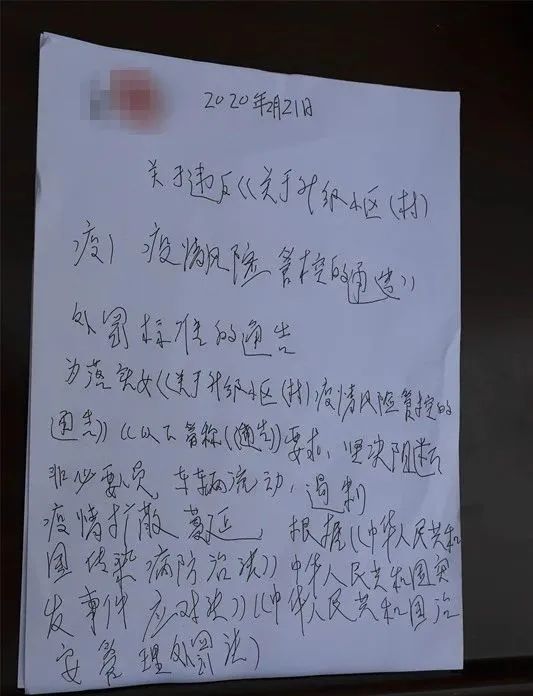 2020年2月21日
关于违反《关于升级小区(村)
疫) 疫情风险管控的通告》
处罚标准的通告
为落实《关于升级小区(村)疫情风险管控的
通告》《以下简称《通告》要求,坚决阻断
非必要人员,车辆流动,遏制
疫情扩散蔓延,根据《中华人民共和
国传染病防治法》中华人民共和国突
发事件应对法》《中华人民共和国治
安管理处罚法)